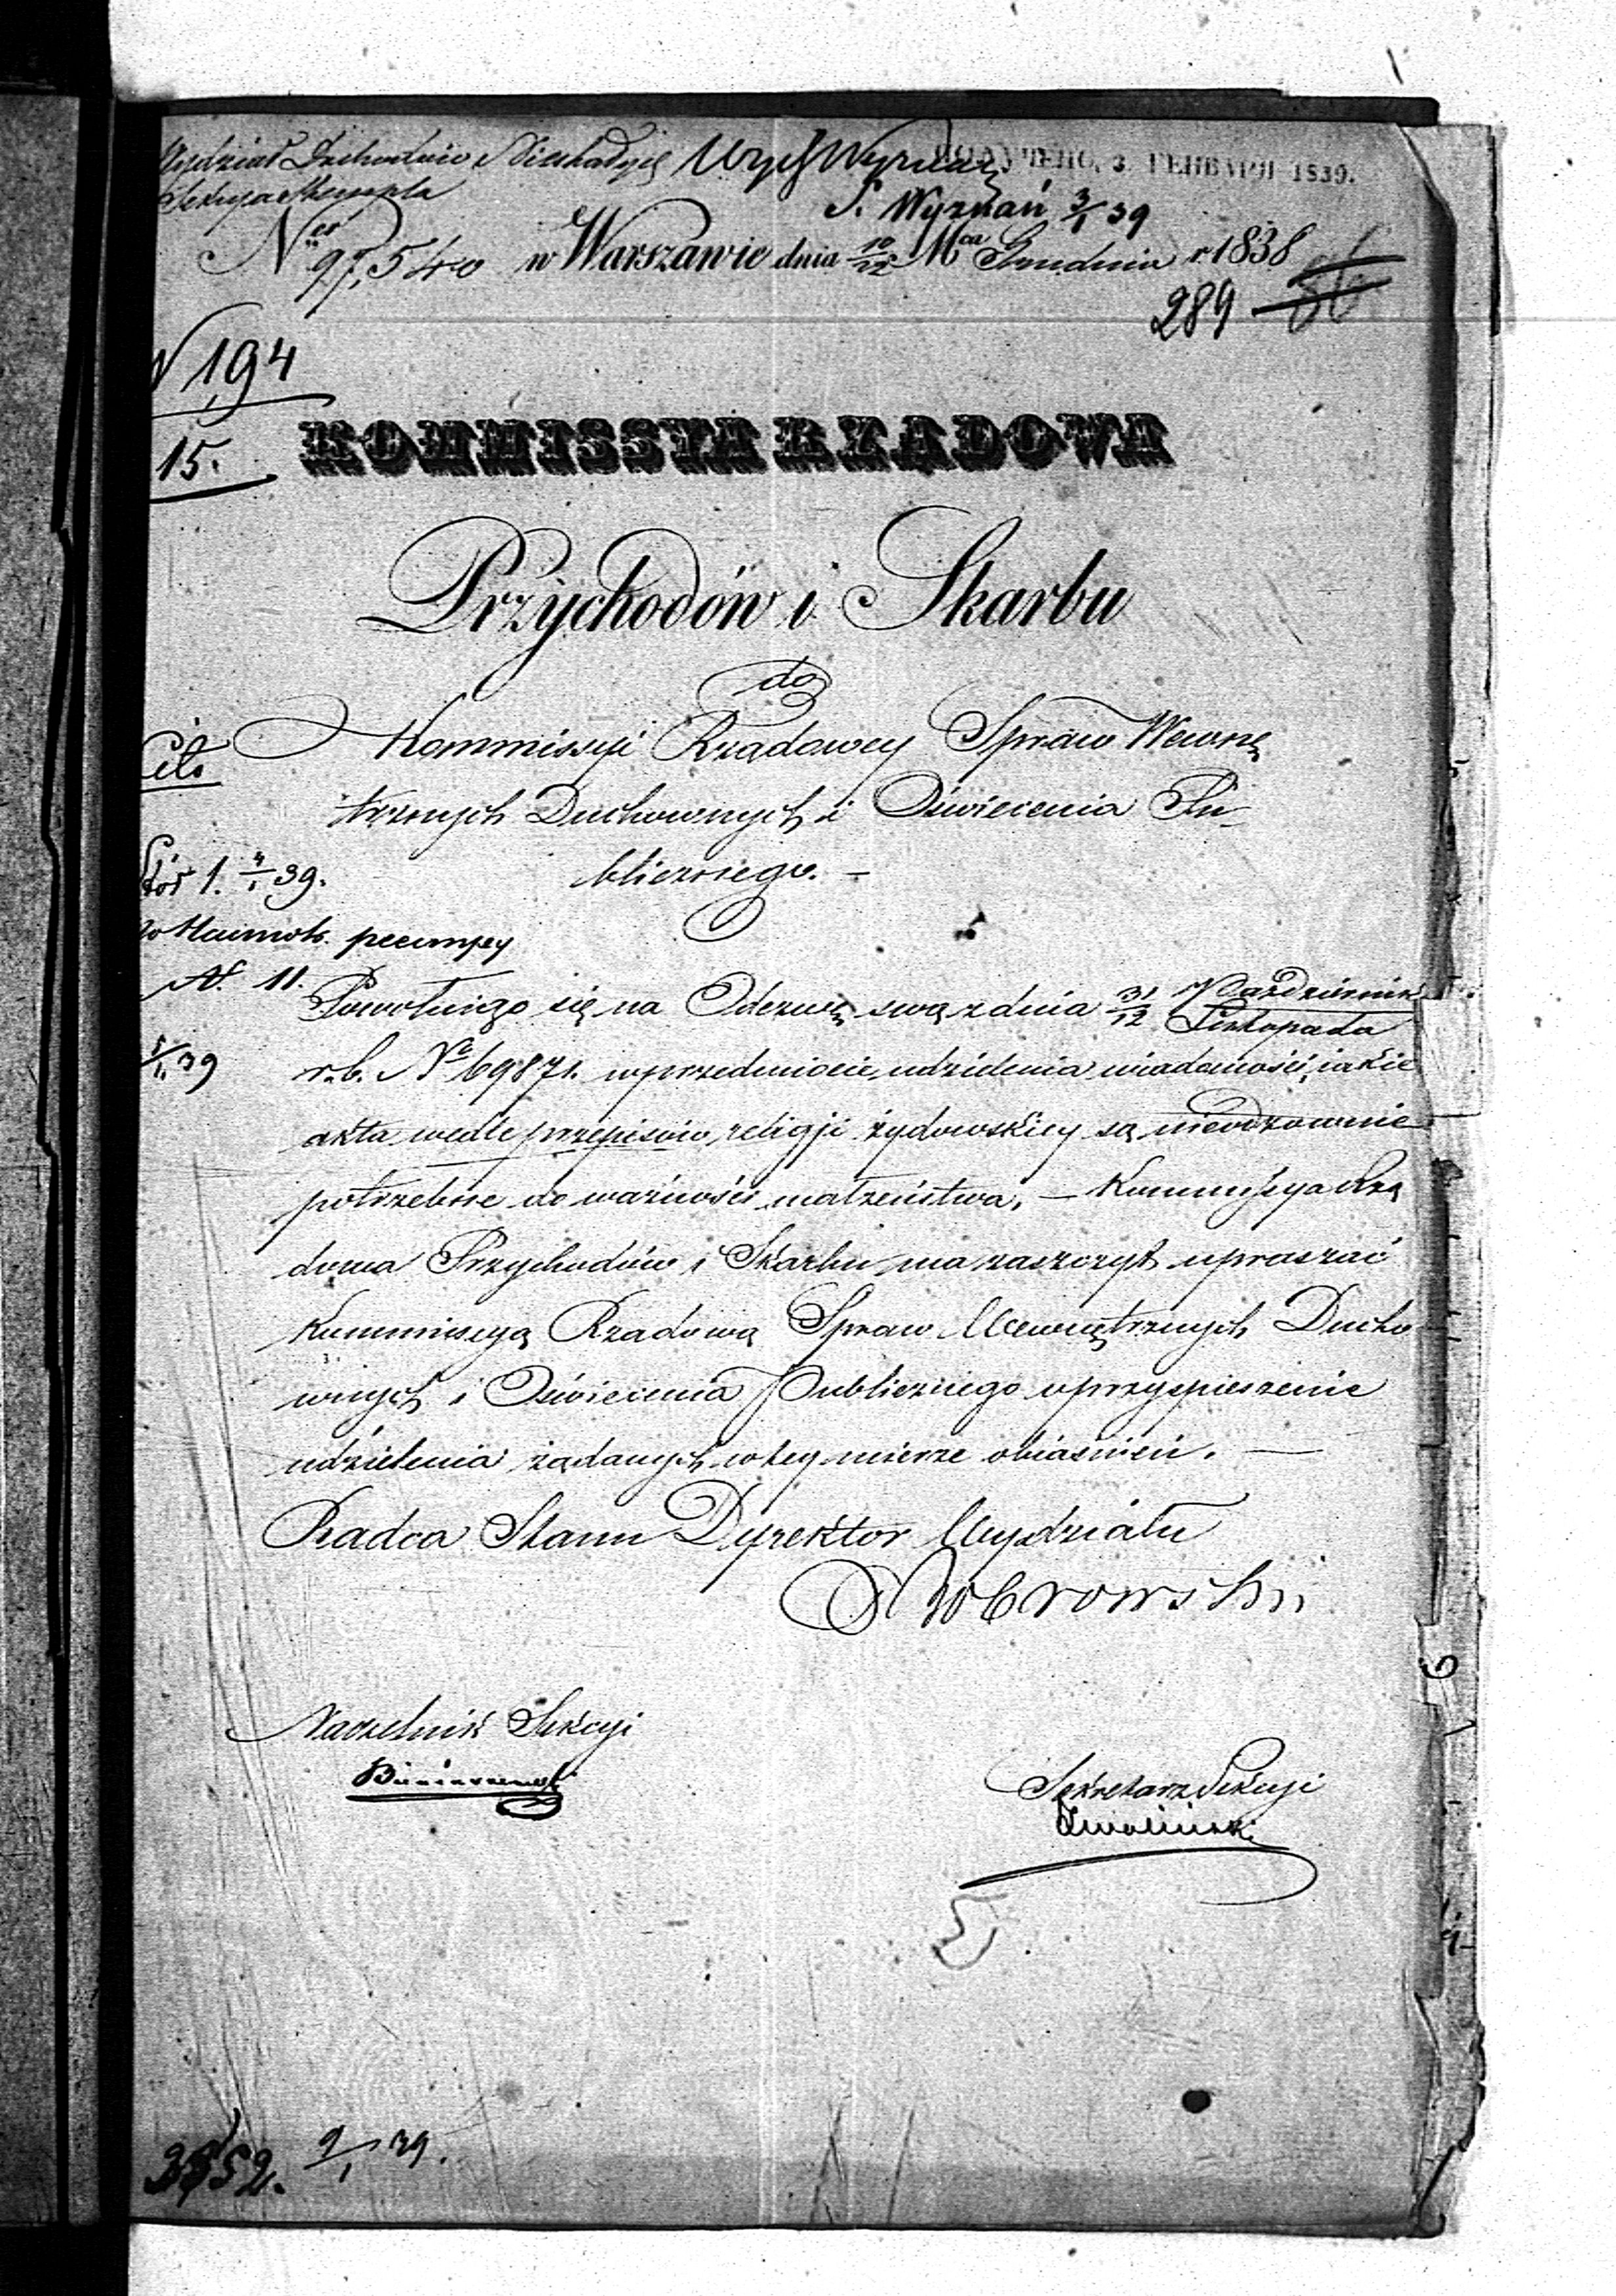 Wydział Dochodów Niestałych Wyzł Wyznań ПОЛУЧЕНО, 3. ГЕНВАРЯ 1839.
Sekcya Stempla
S. Wyznań 3/1 39
Ner 97,540 w Warszawie dnia 10/22 Mca Grudnia r 1838
289
N 194
15.
KOMMISSYA RZĄDOWA
Przychodów i Skarbu
do
Kommissyi Rządowey Spraw Wewnę
trznych Duchownych i Oświecenia Pu-
blicznego. —
Cito
1. 4/1 39.
N. 11.
5/1 39
Powołując się na Odezwę swą z dnia 31/12 Październik/Listopada
r.b. No 69871. w przedmiocie udzielenia wiadomości, iakie
akta wedle przepisów religji żydowskiey są nieodzownie
potrzebne do ważności małżeństwa, — Kommissya Rzą
dowa Przychodów i Skarbu ma zaszczyt upraszać
Kommissyą Rządową Spraw Wewnętrznych Ducho
wnych i Oświecenia Publicznego o przyspieszenie
udzielenia żądanych w tey mierze obiaśnień. —
Radca Stanu Dyrektor Wydziału
Naczelnik Sekcyi
Sekretarz Sekcyi
9/1 39.